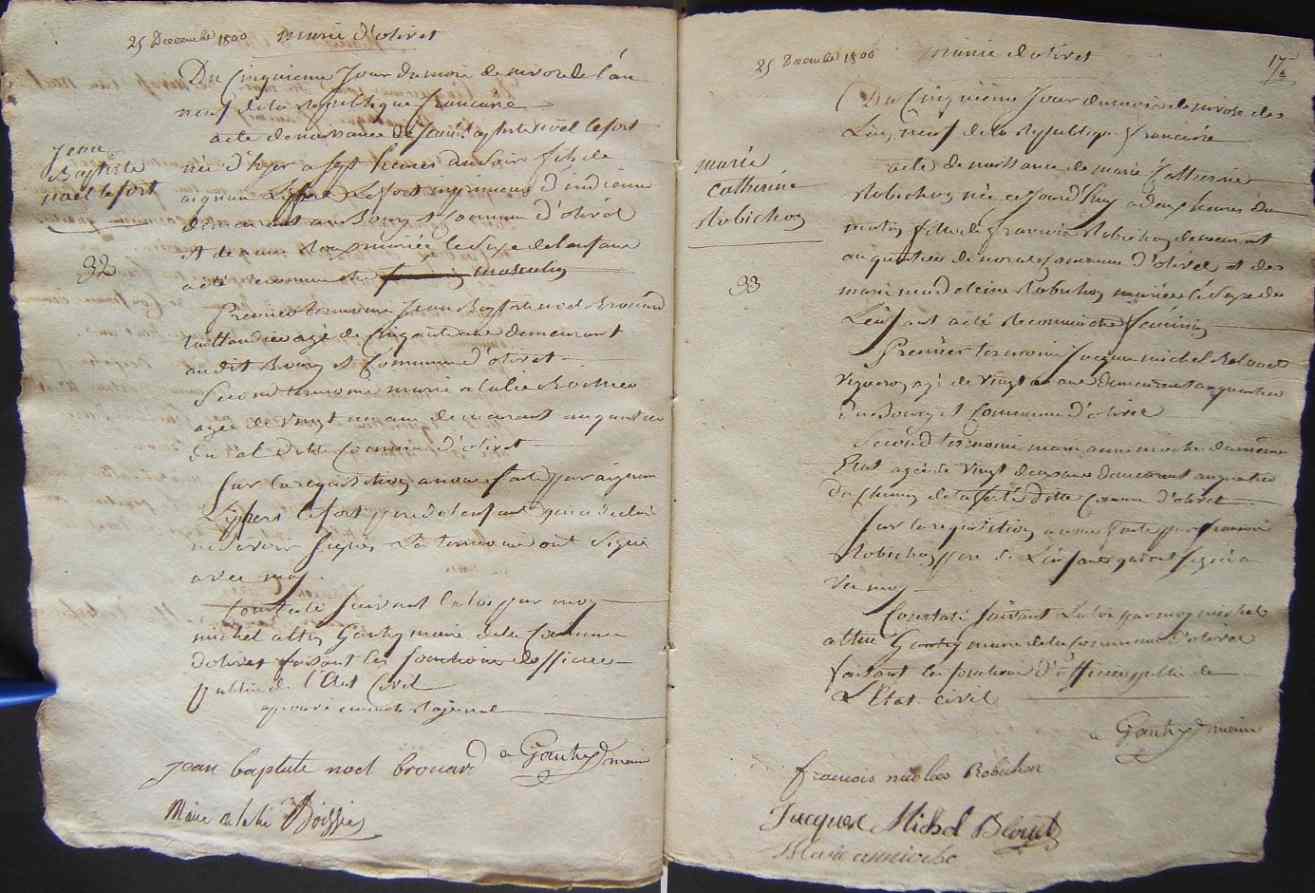 25 Decembre 1800 mairie d'olivet
Du Cinquieme Jour du mois de nivose de l'an
neuf de la Republique francaise
acte de naissance de Jean Baptiste noël lefort
né d'hyer a sept heures du soir fils de
aignan Lefort imprimeur d'indienne
demeurant au Bourg et Commune d'olivet
et de mariée le Sexe de lenfant
a été reconnu etre masculin
Jean
Baptiste
noël lefort
32
Premier temoin Jean Baptiste noel Brouard
taillandier agé de Cinquante ans demeurant
audit Bourg et Commune d'olivet
Second temoin marie
agée de vingt un ans demeurant au quartier
du val ditte Commune d'olivet
Sur la requisition a nous faite par aignan
lefort pere de lenfant qui a déclaré
ne savoir signer les temoins ont signé
avec moy.
Constaté suivant la loi par moy
michel altin Gautry maire de la Commune
d'olivet faisant les fonctions d'officier
public de l'Etat Civil
jean baptiste noel brouard a Gautry maire
Marie Boissier
25 Decembre 1800 mairie d'olivet 17
Du Cinquieme Jour du mois de nivose de
L'an neuf de la Republique francaise
acte de naissance de marie Catherine
Robichon née ce jourd'huy a deux heures du
matin fille de francois Robichon demeurant
au quartier de Commune d'olivet et de
marie Robichon mariée le Sexe de
L'enfant a été Reconnu etre féminin
marie
Catherine
Robichon
33
Premier temoin Jacque michel
vigneron agé de vingt ans demeurant au quartier
du Bourg et Commune d'olivet
Second temoin marie anne
Etat agée de vingt deux ans demeurant au quartier
du chemin de la ditte Commune d'olivet
Sur la requisition a nous faite par francois
Robichon pere de L'enfant qui ont signé a
vec moy
Constaté suivant La loi par moy michel
altin Gautry maire de la Commune d'olivet
faisant les fonctions d'officier public de
L'Etat civil
a Gautry maire
francois nicolas Robichon
Jacques Michel
Marie anne